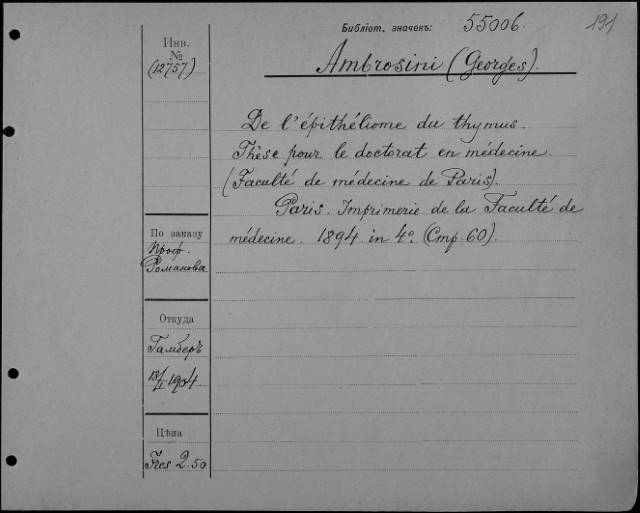 Библіот. значекъ: 55006. 191
Инв.
№
(12757)
Ambrosini (Georges).
De l'épithéliome du thymus.
Thèse pour le doctorat en médecine.
(Faculté de médecine de Paris).
Paris. Imprimerie de la Faculté de
médecine. 1894 in 4º. (Стр. 60).
По заказу
Проф.
Романова
Откуда
Гамберъ
1904
Цѣна
Frcs 2.50